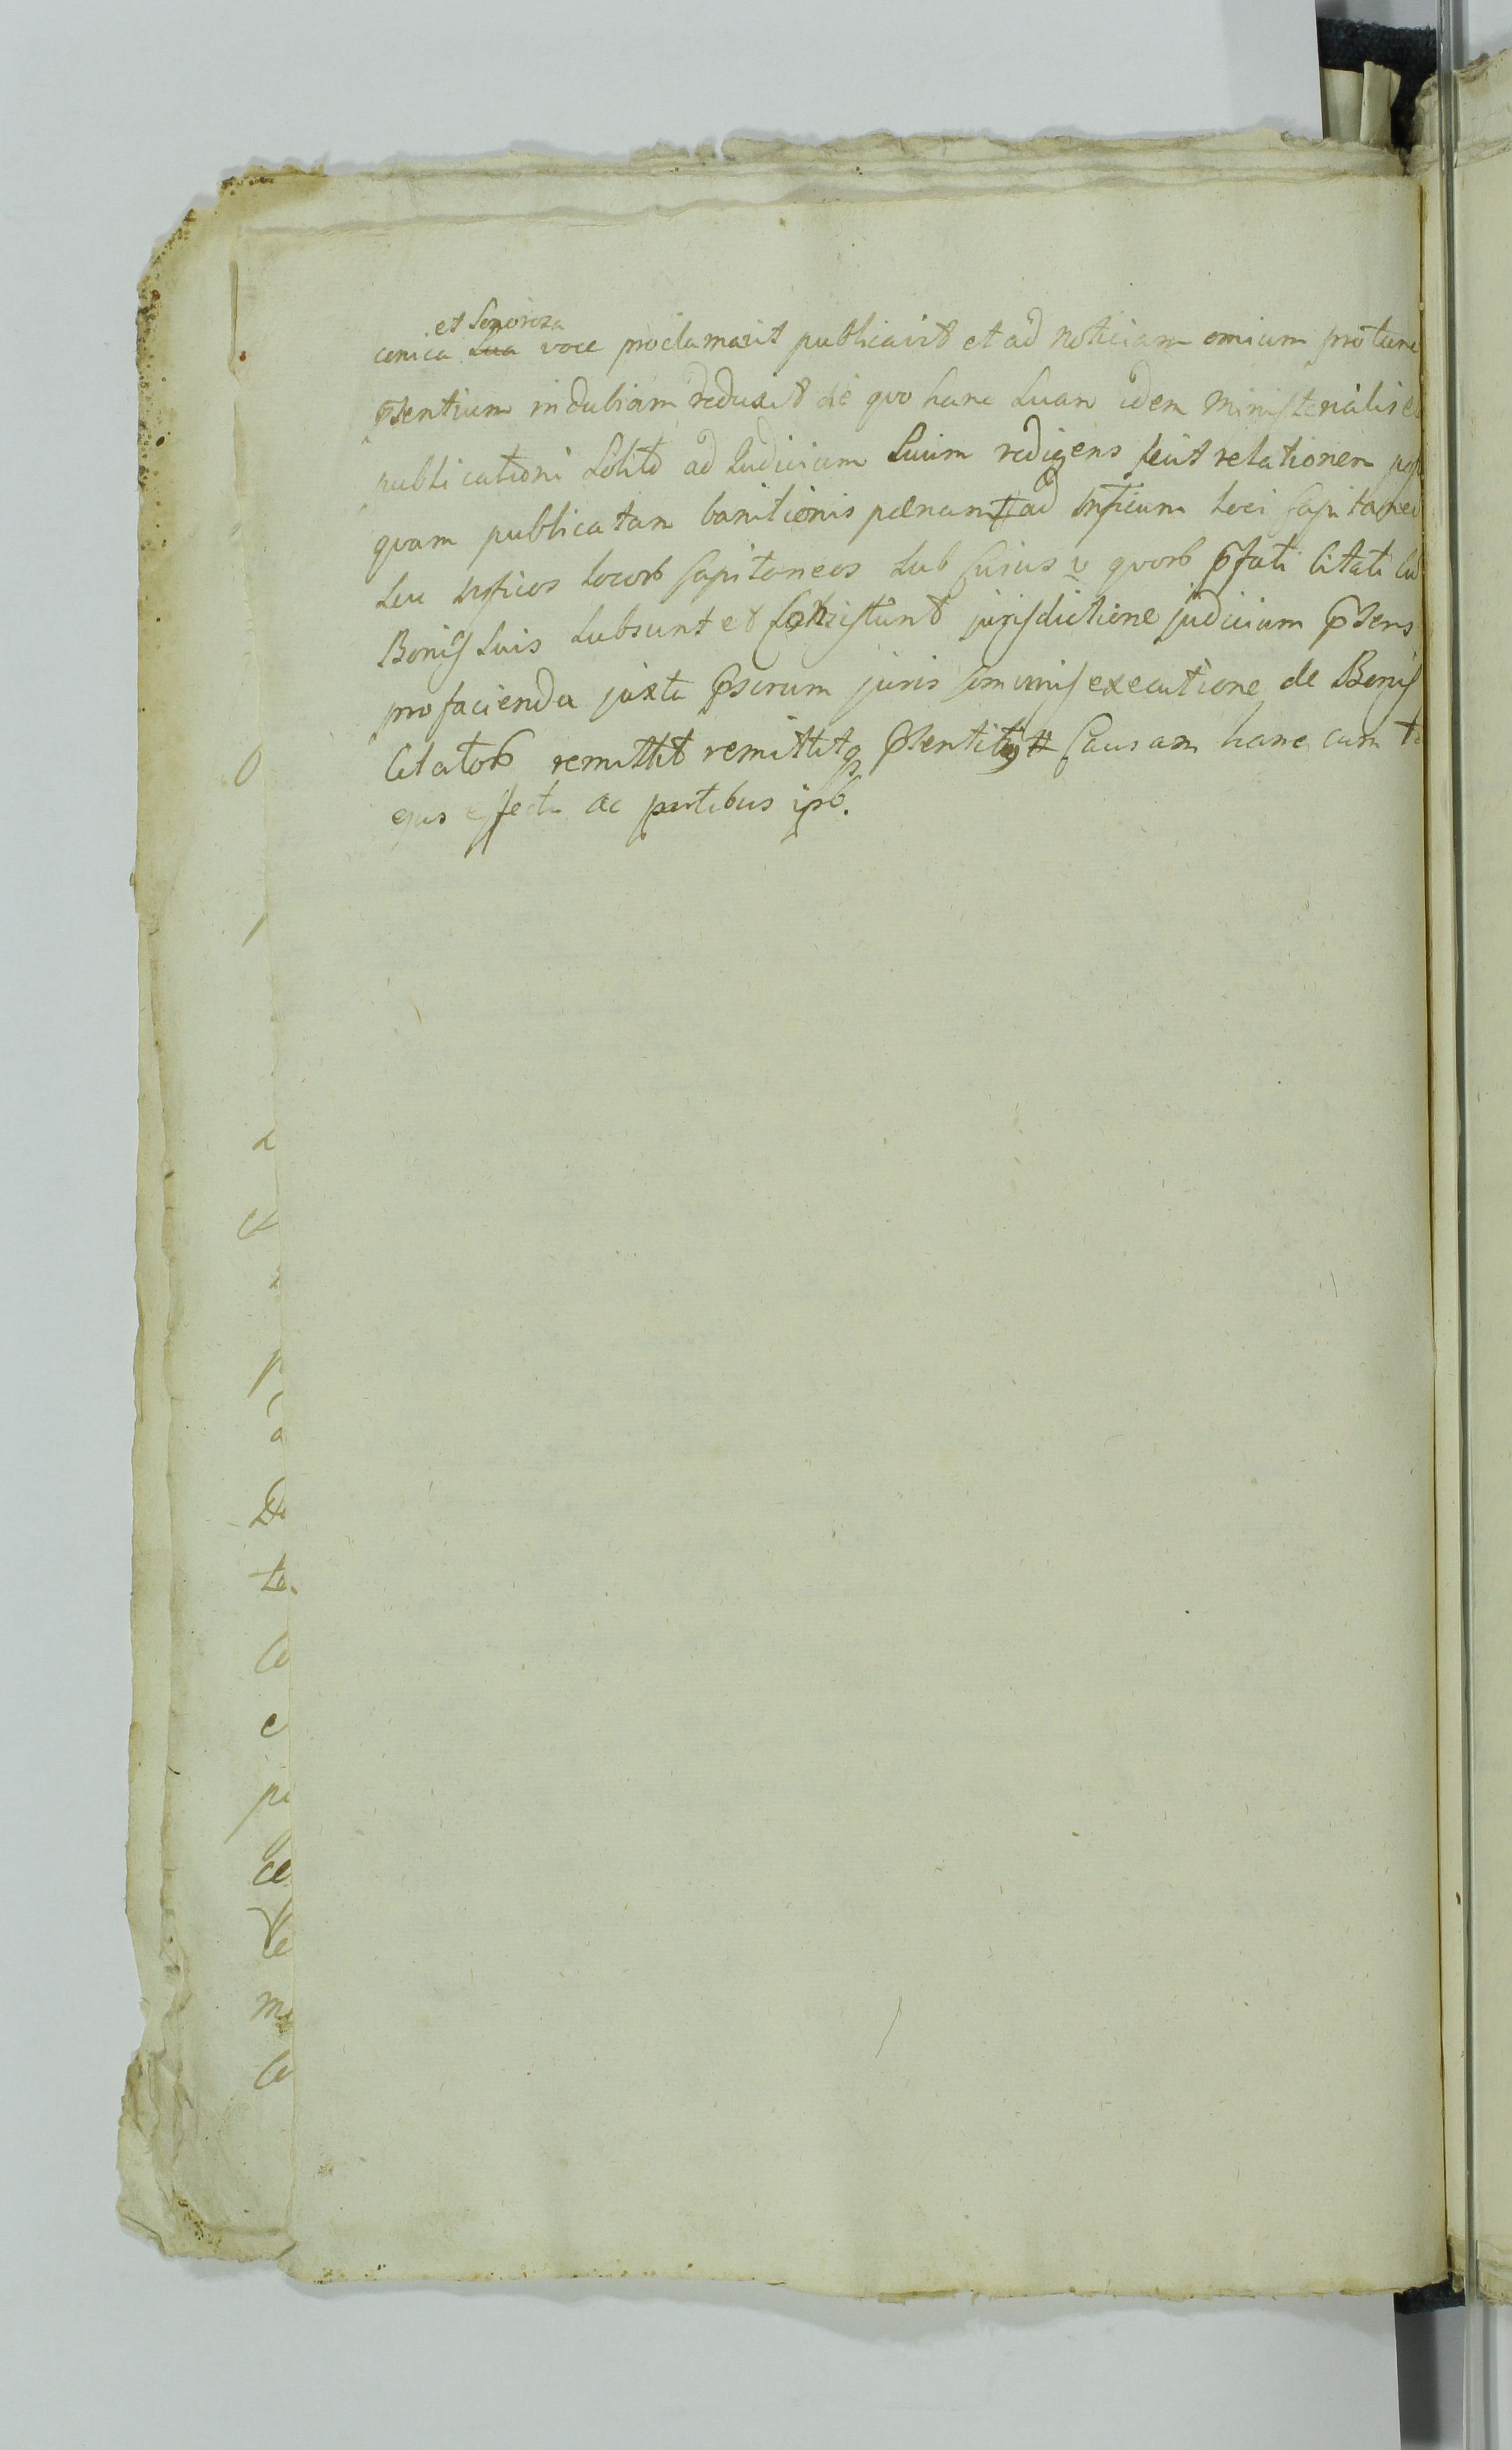 et Sonorosa
conica sua voce proclamavit publicavit et ad noticiam omium protunc
psentium indubiam reduxit de quo hanc suam idem Ministerialis
publicationi solito ad Iudicium suum redigens fecit relationem post
quam publicatam banitionis pœnam ad Insticium loci Capitaneu
seu Insticos locorb Capitaneos sub cuius v quorb pfati Citati cu
Bonis suis subsunt et Consistunt jurisdictione judicium psens
pro facienda juxta pscrum juris comunis executione de Bonis
Citatorb remittit remittitq psentibus Causam hanc cum to
ejus effectu ac partibus ipsb.